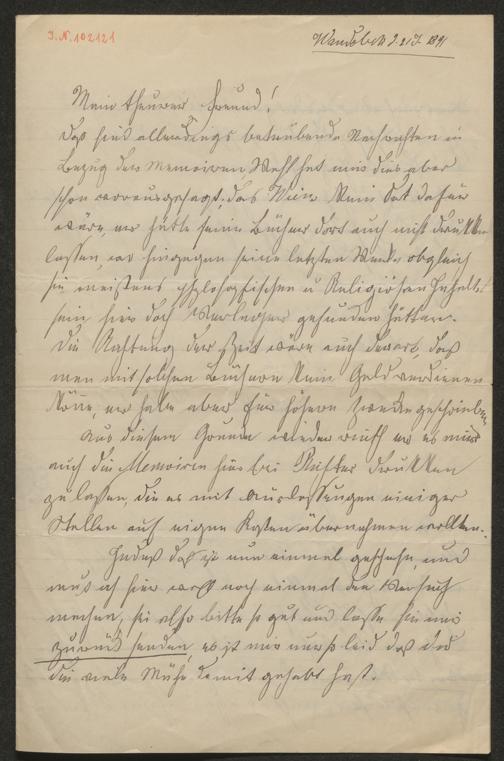 I.N. 102121
Wandsbek d. 21/3. 1891
Mein theurer Freund!
Das sind allerdings betrübende Nachrichten in
Bezug der Memoiren Mehl hat mir dies aber
schon vorausgesagt, das Wien kein Ort dafür
wäre, er hätte seine Bücher dort auch nicht drucken
lassen, wo hingegen seine letzten Werke obgleich
sie meistens philosophischen u Religiösen Inhalts
sein hier doch Verleger gefunden hätten.
Die Richtung der Zeit wäre auch derart, daß
man mit solchen Büchern kein Geld verdienen
könne, er habe aber für höhere Zwecke geschrieben
Aus diesem Grunde wieder er es mir
auch die Memoiren hier bei Richter drucken
zu lassen, die es mit Auslassungen einiger
Stellen auf eigne Kosten übernehmen wollten.
Indeß das ist nun einmal geschehn, und
muß ich hier erst noch einmal den Versuch
machen, sei also bitte so gut und lasse sie mir
zurück senden, es ist mir nur so leid daß du
die viele Mühe damit gehabt hast.